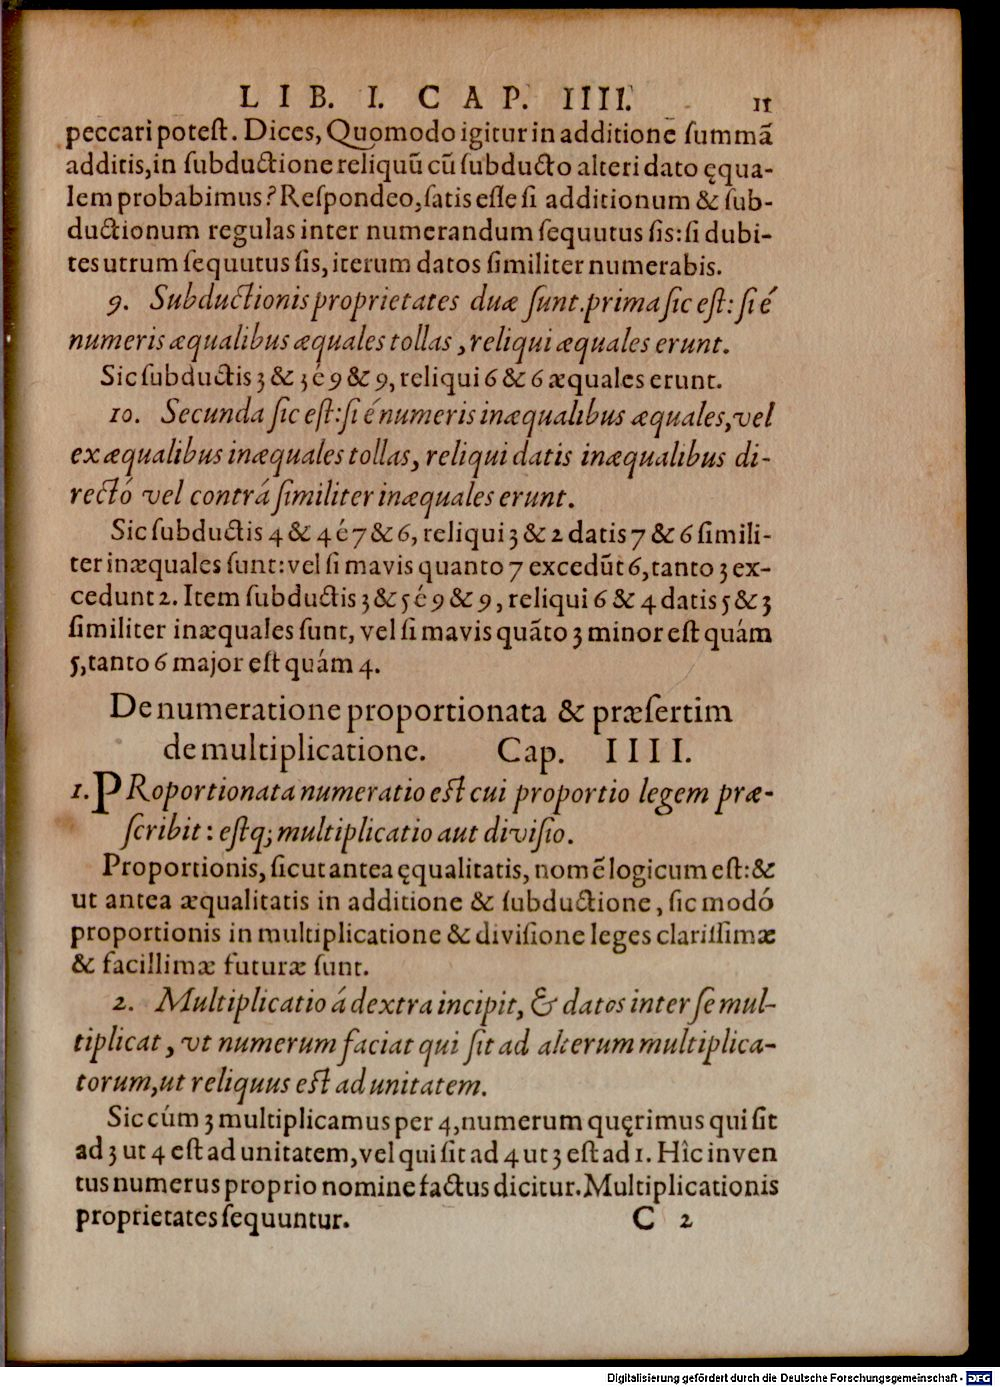 LIB. I. CAP. IIII. 11
peccari potest. Dices, Quomodo igitur in additione summā
additis, in subductione reliquū cū subducto alteri dato ęqua-
lem probabimus? Respondeo, satis esse si additionum & sub-
ductionum regulas inter numerandum sequutus sis: si dubi-
tes utrum sequutus sis, iterum datos similiter numerabis.
9. Subductionis proprietates duæ sunt. prima sic est: si é
numeris æqualibus æquales tollas, reliqui æquales erunt.
Sic subductis 3 & 3 é 9 & 9, reliqui 6 & 6 æquales erunt.
10. Secunda sic est: si é numeris inæqualibus æquales, vel
ex æqualibus inæquales tollas, reliqui datis inæqualibus di-
rectó vel contrá similiter inæquales erunt.
Sic subductis 4 & 4 é 7 & 6, reliqui 3 & 2 datis 7 & 6 simili-
ter inæquales sunt: vel si mavis quanto 7 excedūt 6, tanto 3 ex-
cedunt 2. Item subductis 3 & 5 é 9 & 9, reliqui 6 & 4 datis 5 & 3
similiter inæquales sunt, vel si mavis quāto 3 minor est quám
5, tanto 6 major est quám 4.
De numeratione proportionata & præsertim
de multiplicatione. Cap. IIII.
1. PRoportionata numeratio est cui proportio legem præ-
scribit: estq; multiplicatio aut divisio.
Proportionis, sicut antea ęqualitatis, nomē logicum est: &
ut antea æqualitatis in additione & subductione, sic modó
proportionis in multiplicatione & divisione leges clarissimæ
& facillimæ futuræ sunt.
2. Multiplicatio á dextra incipit, & datos inter se mul-
tiplicat, vt numerum faciat qui sit ad alterum multiplica-
torum, ut reliquus est ad unitatem.
Sic cúm 3 multiplicamus per 4, numerum quęrimus qui sit
ad 3 ut 4 est ad unitatem, vel qui sit ad 4 ut 3 est ad 1. Hîc inven
tus numerus proprio nomine factus dicitur. Multiplicationis
proprietates sequuntur. C 2
Digitalisierung gefördert durch die Deutsche Forschungsgemeinschaft - DFG